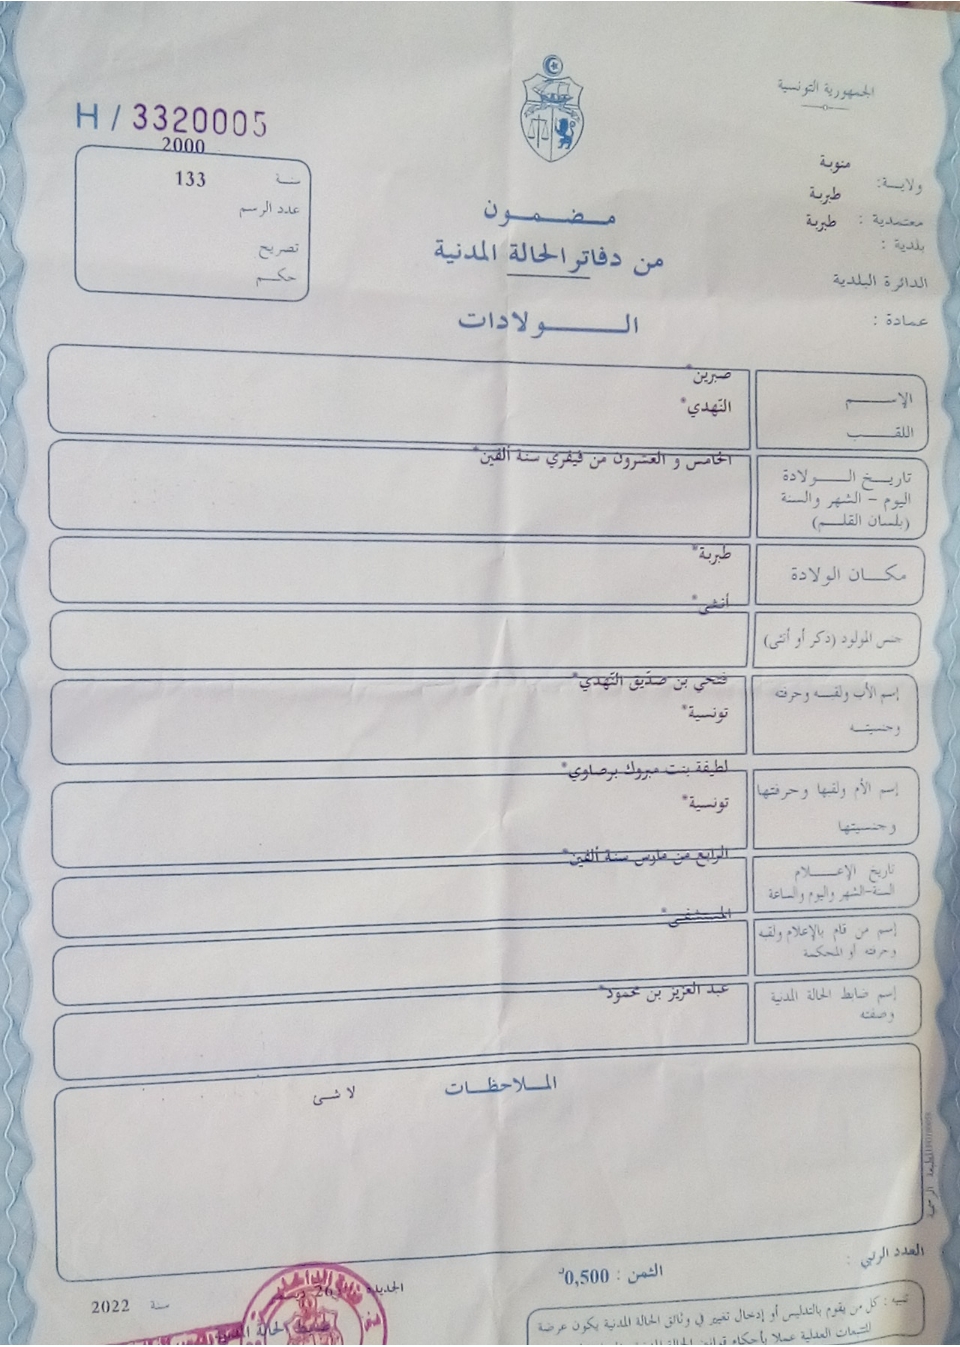 الجمهورية التونسية
H / 3320005
ولاية: منوبة
معتمدية : طبربة
بلدية : طبربة
الدائرة البلدية
عمادة :
2000
سنة 133
عدد الرسم
تصريح
حكم
مضمون
من دفاتر الحالة المدنية
الولادات
الإسم صبرين*
اللقب النّهدي*
تاريخ الولادة الخامس و العشرون من فيفري سنة ألفين*
اليوم - الشهر والسنة
(بلسان القلم)
مكان الولادة طبربة*
جنس المولود (ذكر أو أنثى) أنثى*
إسم الأب ولقبه وحرفته فتحي بن صدّيق النّهدي*
وجنسيته تونسية*
إسم الأم ولقبها وحرفتها لطيفة بنت مبروك برصاوي*
وجنسيتها تونسية*
تاريخ الإعلام الرابع من مارس سنة ألفين*
السنة-الشهر واليوم والساعة
إسم من قام بالإعلام ولقبه المستشفى*
وحرفته أو المحكمة
إسم ضابط الحالة المدنية عبد العزيز بن محمود*
وصفته
الملاحظات
لا شئ
العدد الرتبي :
الثمن : 0,500د
الجديدة 26
سنة 2022
تنبيه : كل من يقوم بالتدليس أو إدخال تغيير في وثائق الحالة المدنية يكون عرضة
للتتبعات العدلية عملا بأحكام قوانين الحالة المدنية
ضابط الحالة المدنية